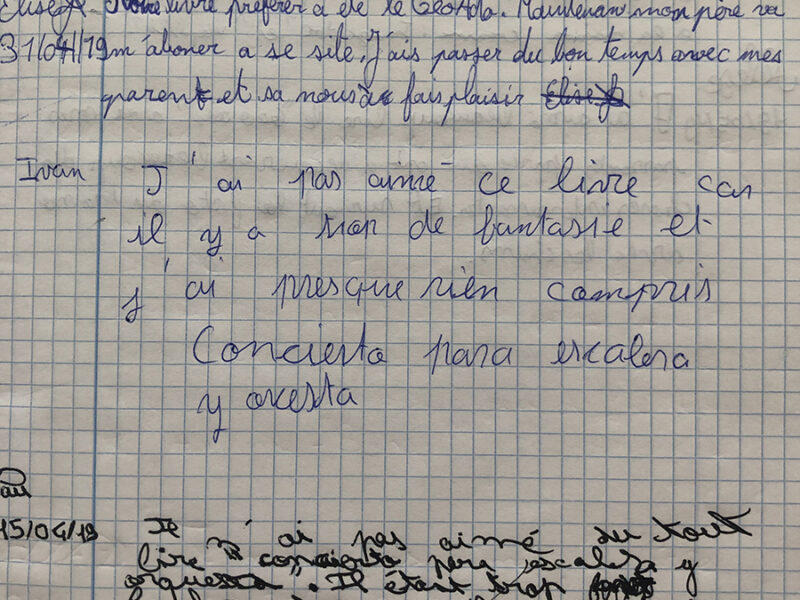 Elise f. Notre livre préférer a été le Geo Ado. Maintenant mon père va
31/04/19 m'aboner a se site. J'ais passer du bon temps avec mes
parent et sa nous a fais plaisir Elise f
Ivan J'ai pas aimé ce livre car
il y a trop de fantasie et
j'ai presque rien compris
Concierto para escalera
y orkesta
au
15/04/19 Je n'ai pas aimé du tout
lire "concierto para escalera y
orquesta". Il était trop